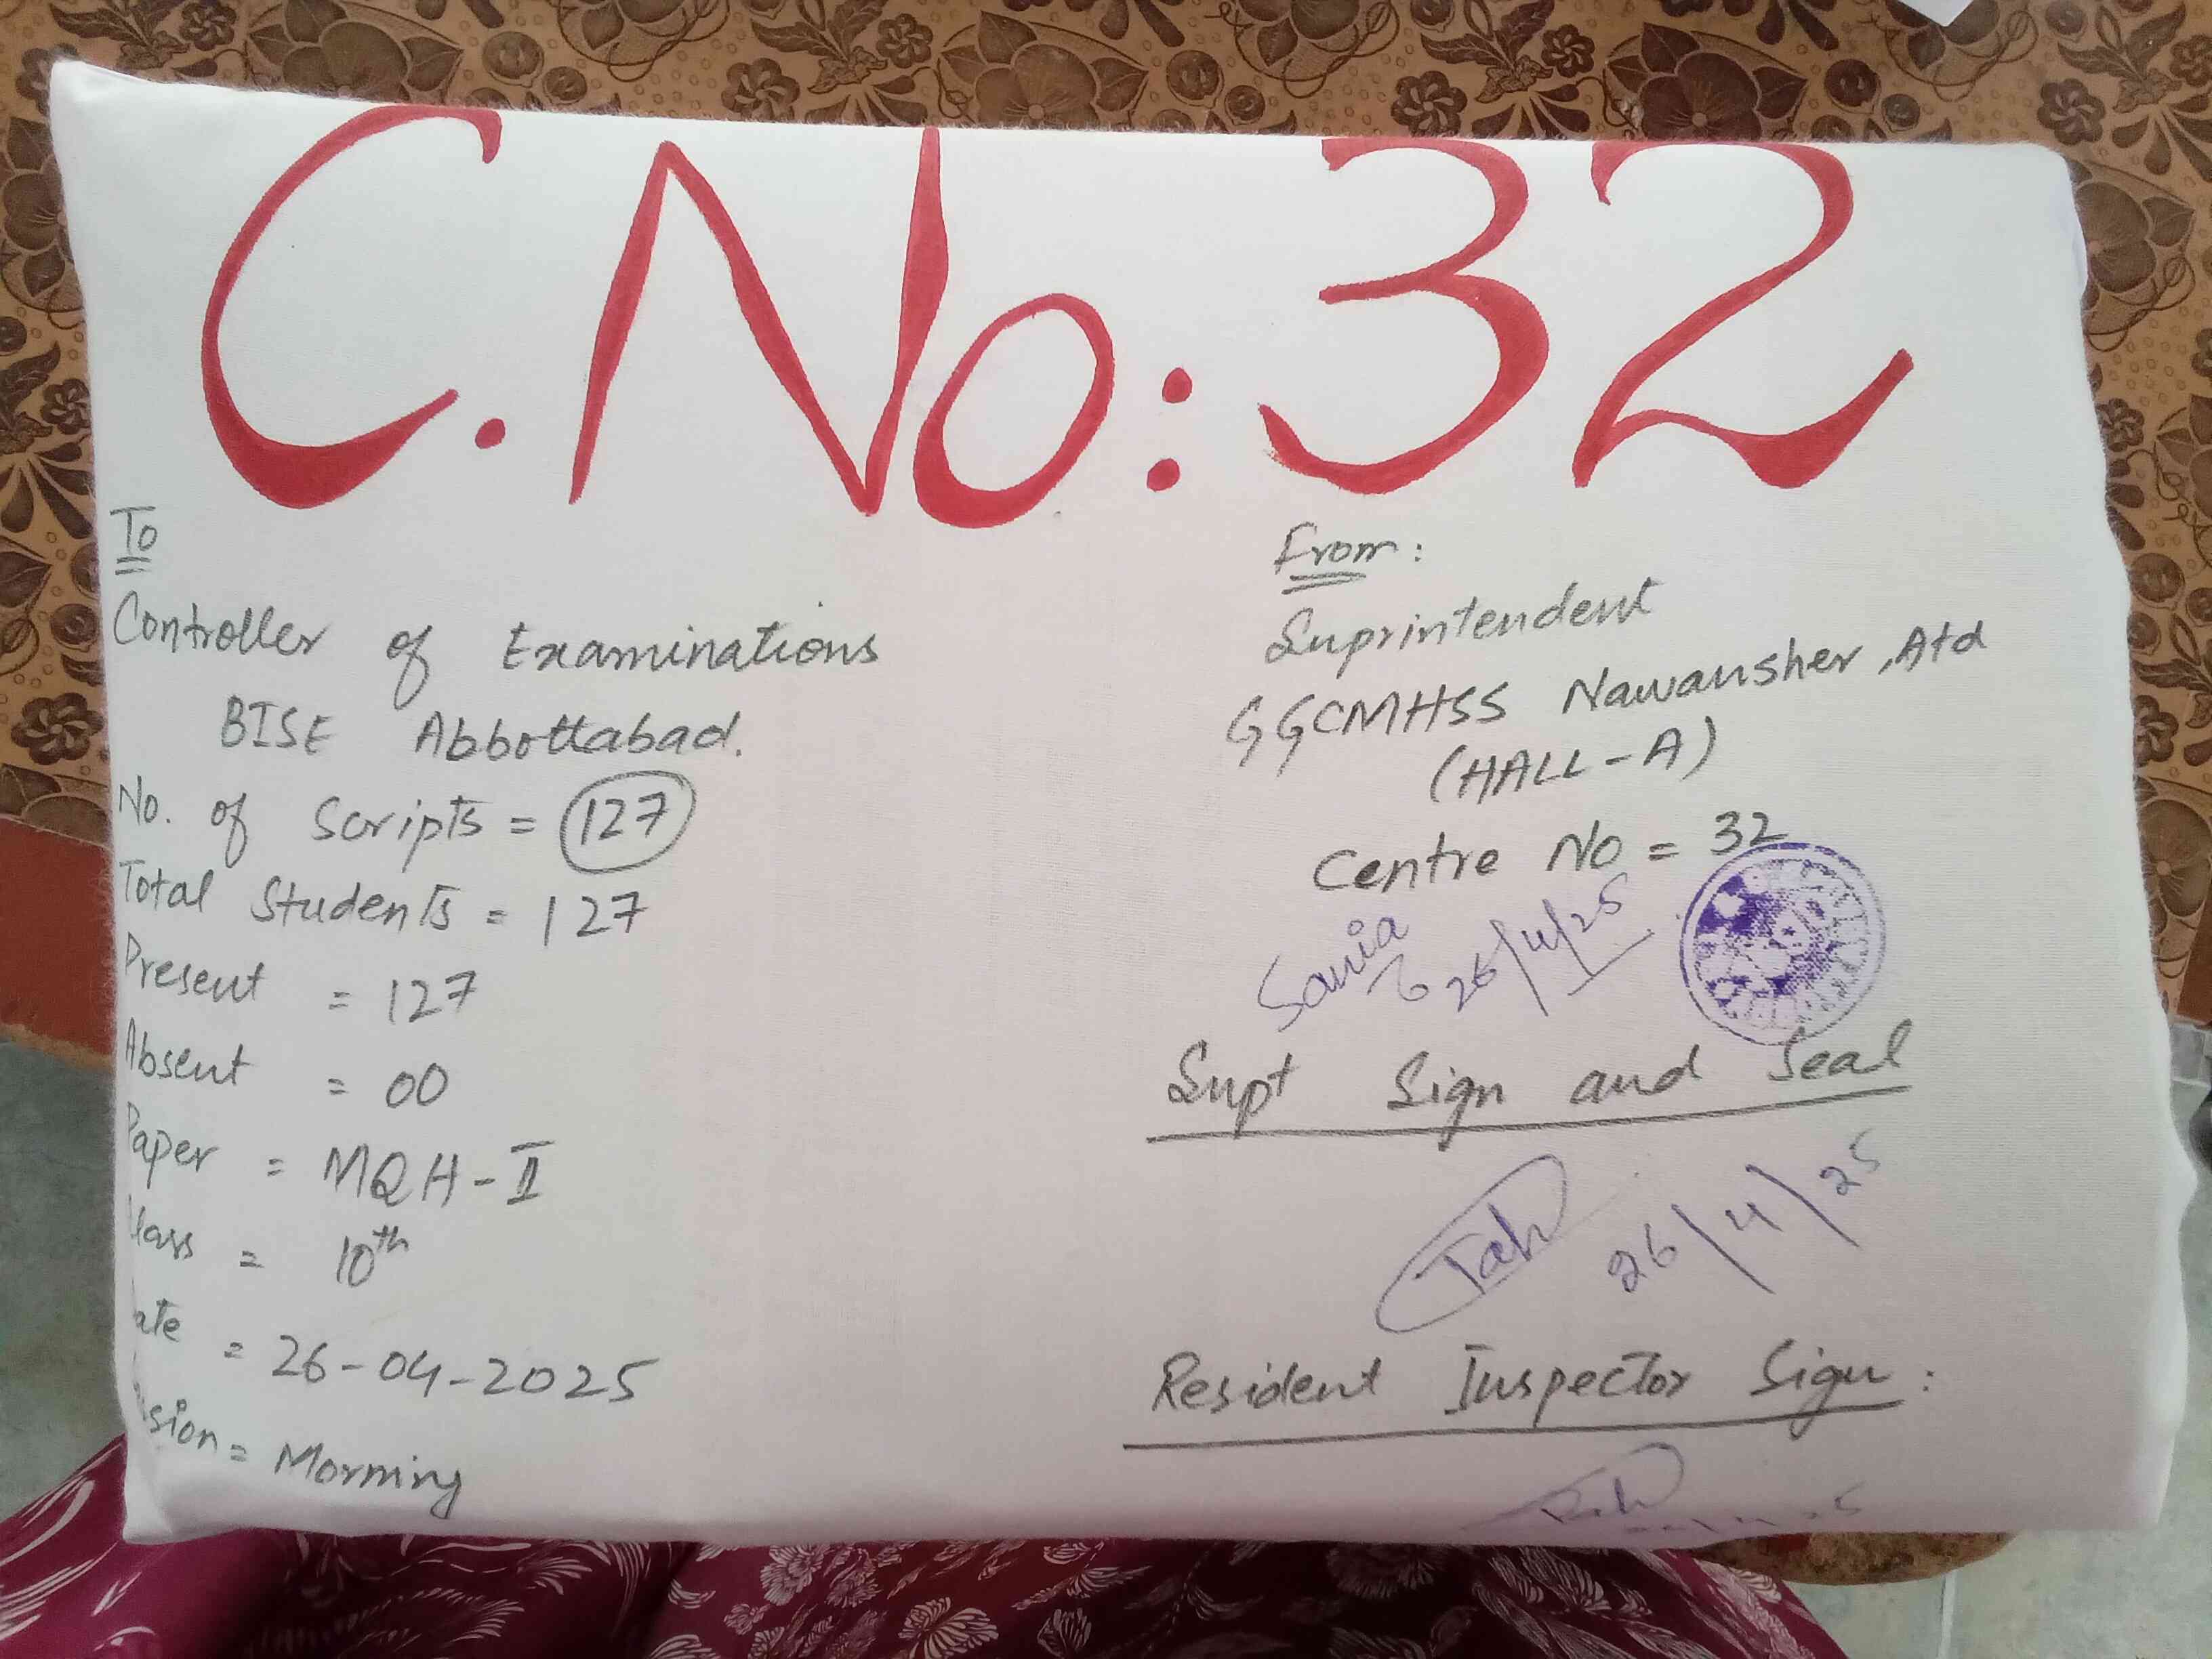 C.No:32
To
Controller of Examinations
BISE Abbottabad.
No. of Scripts = 127
Total Students = 127
Present = 127
Absent = 00
Paper = MQH-II
lass = 10th
ate = 26-04-2025
sion = Morning
From:
Suprintendent
GGCMHSS Nawansher, Atd
(HALL-A)
Centre No = 32
Sania 26/4/25
Supt Sign and Seal
26/4/25
Resident Inspector Sign: